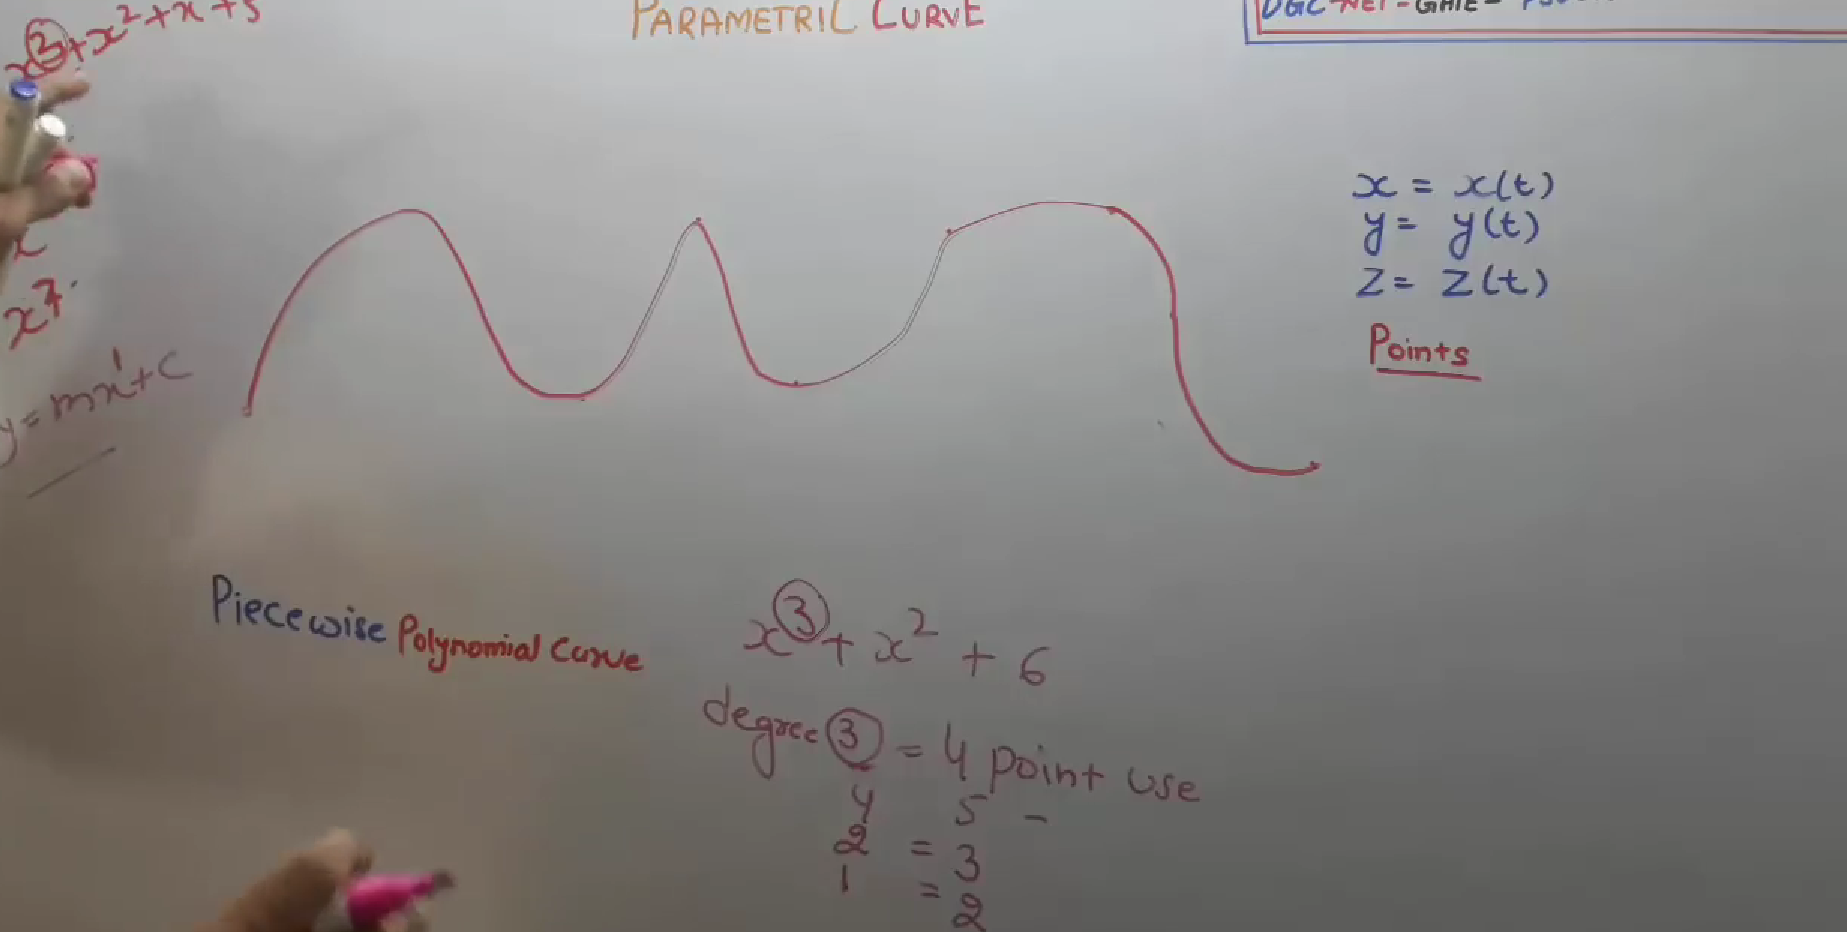 x³+x²+x+5
PARAMETRIC CURVE
UGC-NET-GATE-
x = x(t)
y = y(t)
z = z(t)
Points
x
x⁷
y=mx¹+c
Piecewise Polynomial Curve
x³ + x² + 6
degree 3 = 4 point use
4 5 -
2 = 3
1 = 2